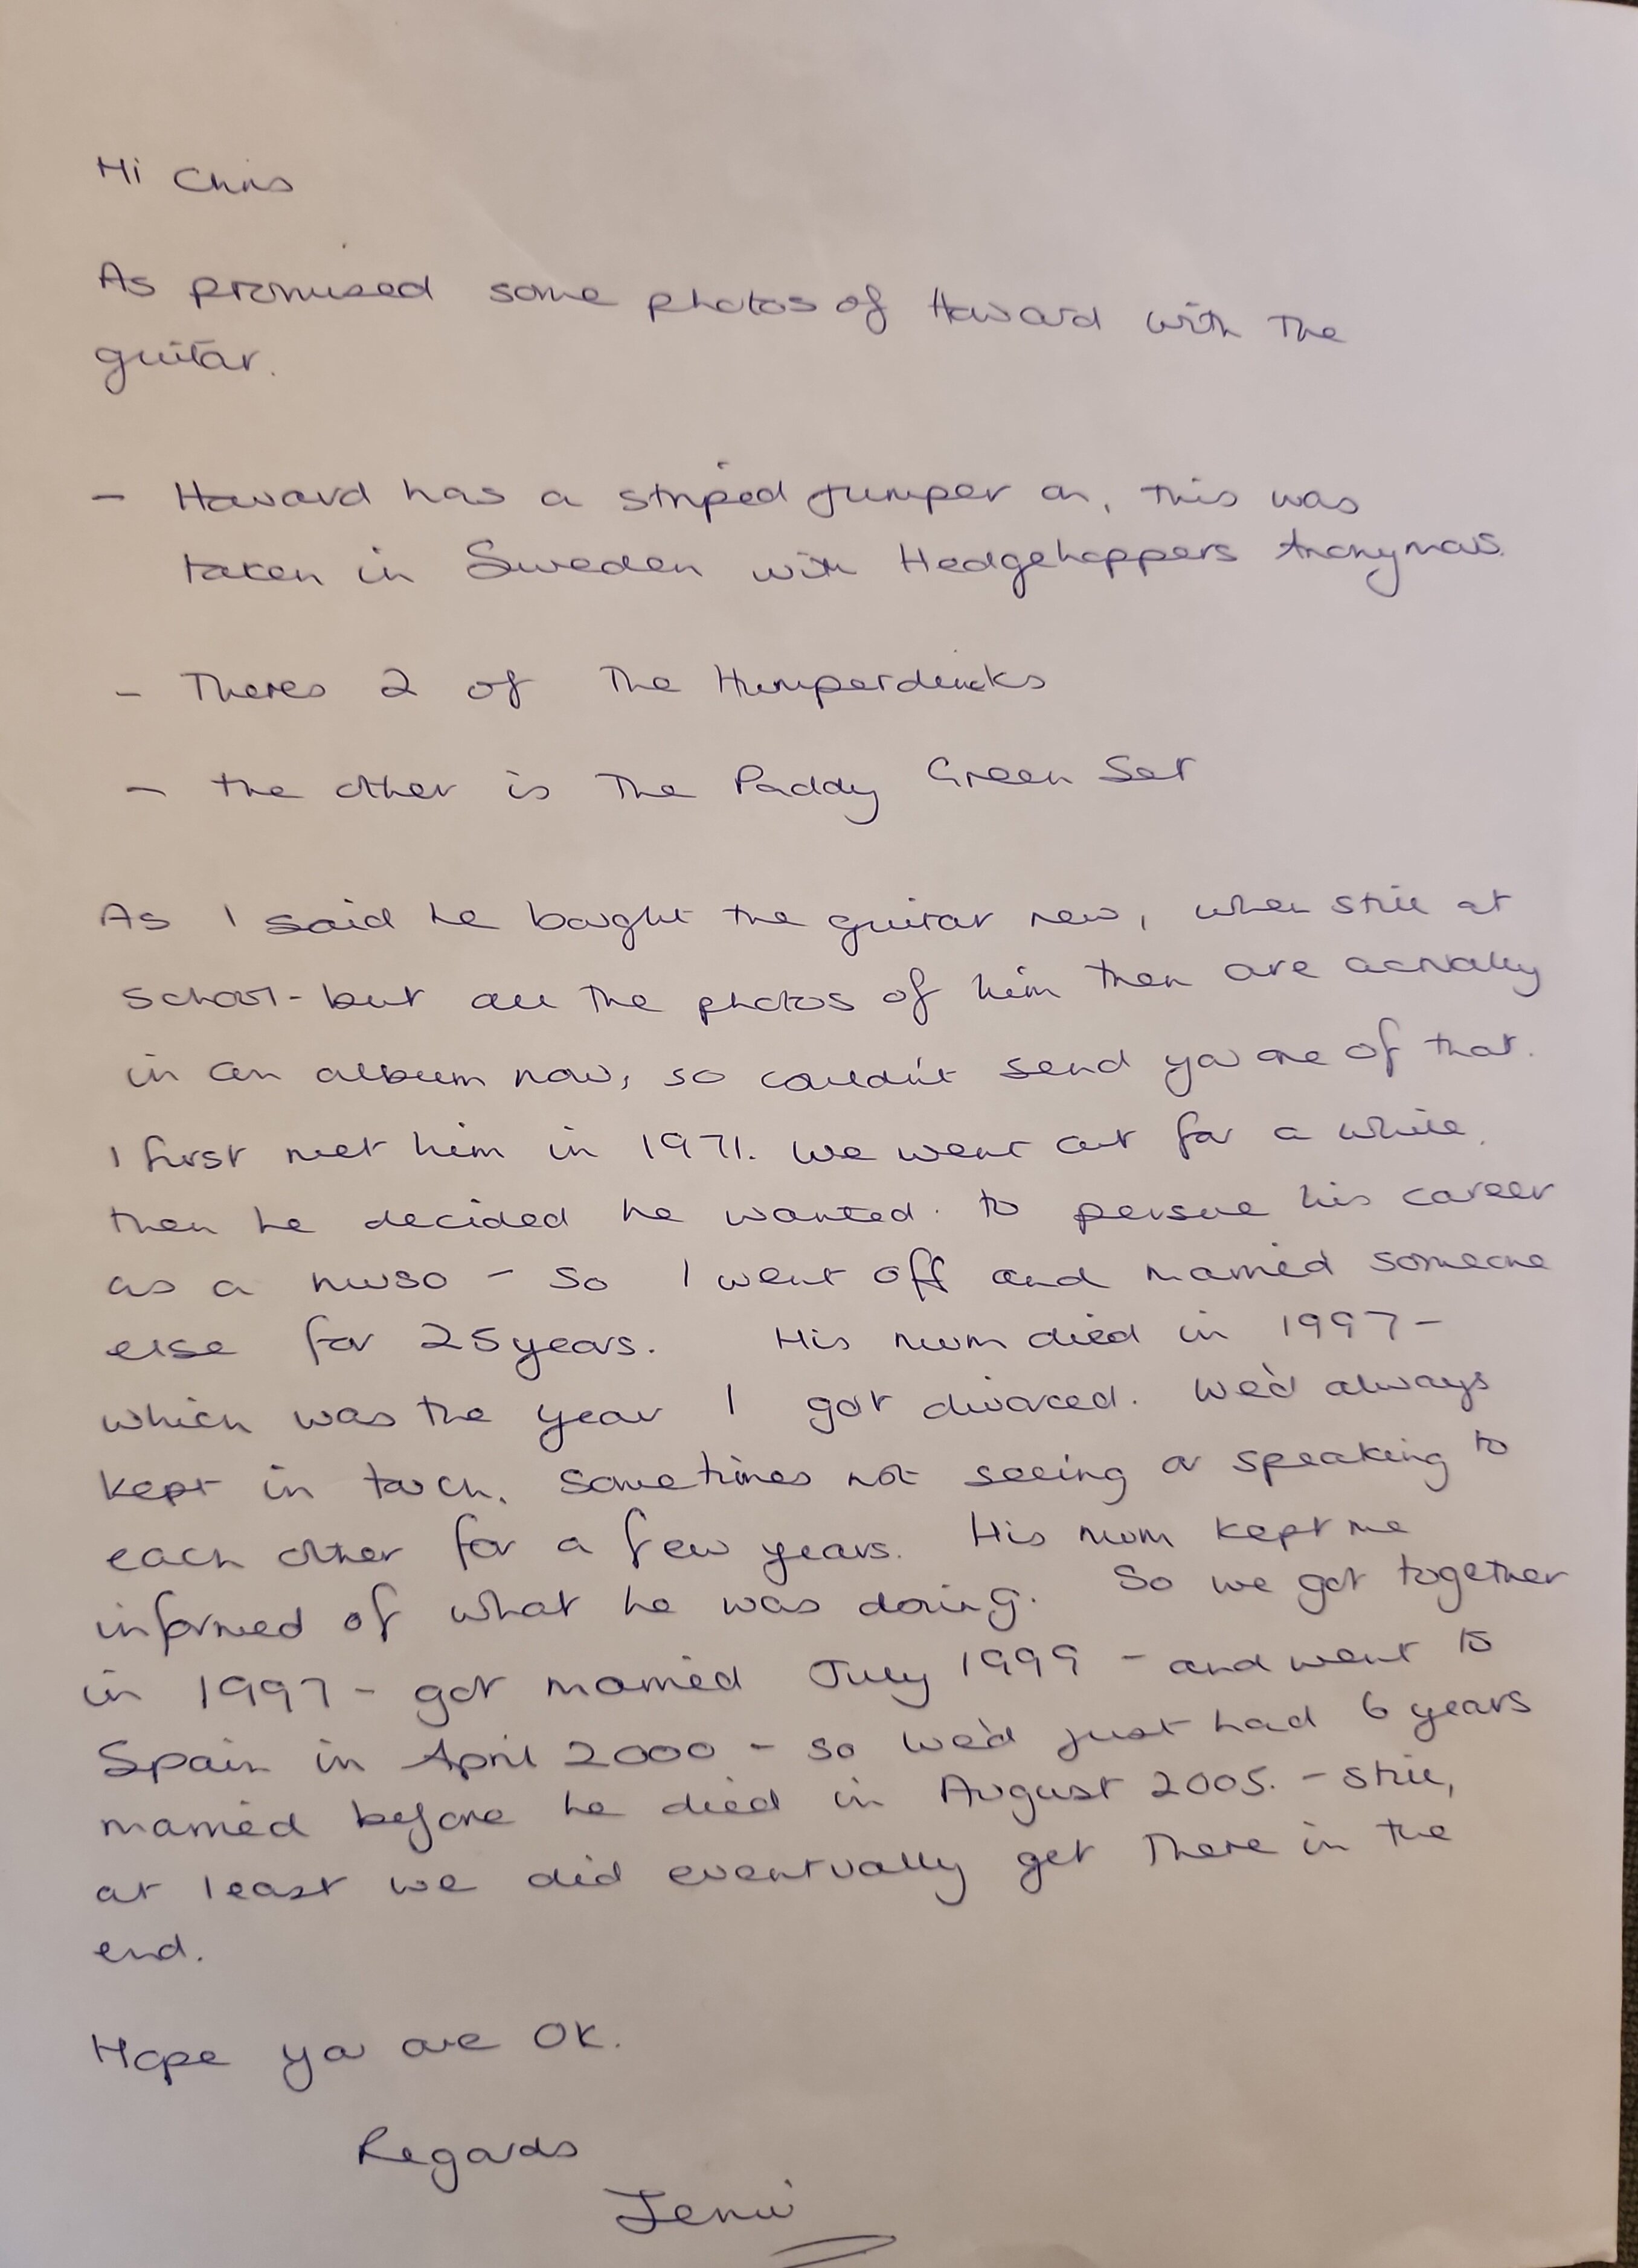 Hi Chris
As promised some photos of Howard with the
guitar.
- Howard has a striped jumper on, this was
taken in Sweden with Hedgehoppers Anonymous.
- Theres 2 of The Humperdincks
- the other is The Paddy Green Set
As I said he bought the guitar new, when still at
school - but all the photos of him then are actually
in an album now, so couldn't send you one of that.
I first met him in 1971. We went out for a while,
then he decided he wanted to persue his career
as a muso - so I went off and married someone
else for 25 years. His mum died in 1997 -
which was the year I got divorced. We'd always
kept in touch, sometimes not seeing or speaking to
each other for a few years. His mum kept me
informed of what he was doing. So we got together
in 1997 - got married July 1999 - and went to
Spain in April 2000 - so we'd just had 6 years
married before he died in August 2005. - still,
at least we did eventually get there in the
end.
Hope you are OK.
Regards
Jenni